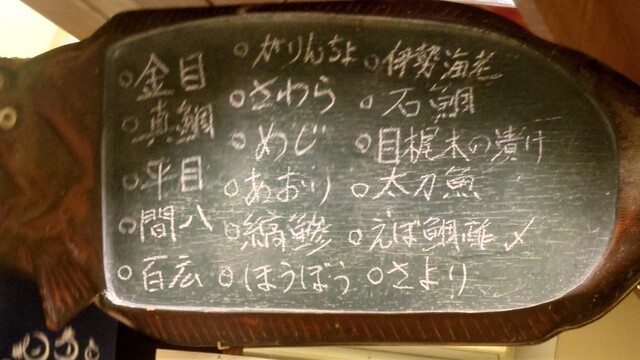 ○金目
○真鯛
○平目
○間八
○百広
○がりんちょ
○さわら
○めじ
○あおり
○縞鯵
○ほうぼう
○伊勢海老
○石鯛
○目梶木の漬け
○太刀魚
○えぼ鯛酢〆
○さより